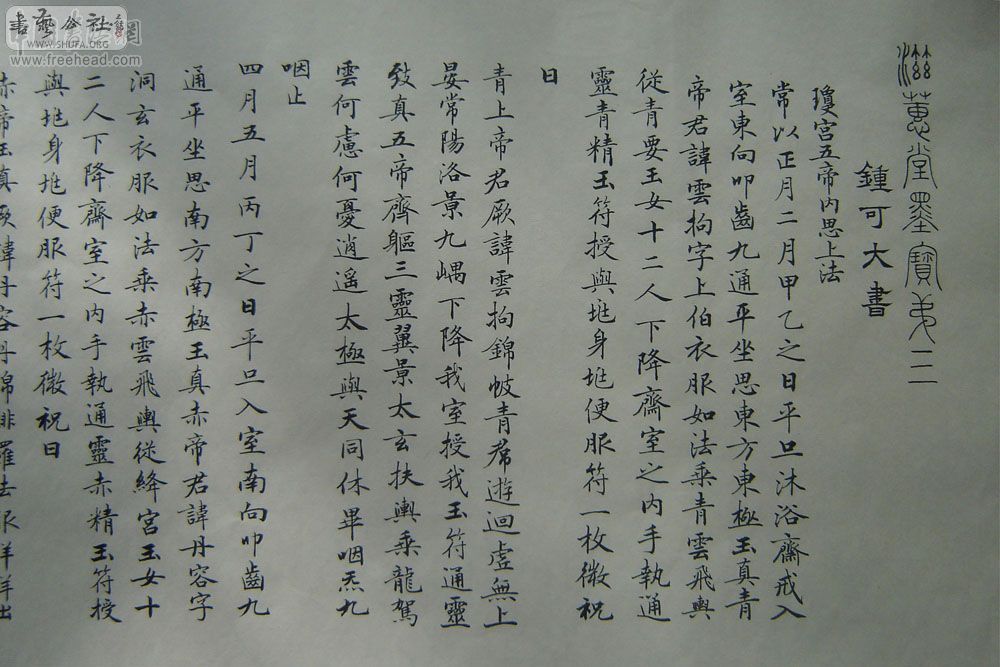 渤海藏真
書藝公社
WWW.SHUFA.ORG
www.freehead.com
滋蕙堂墨寶弟二
鍾可大書
瓊宮五帝內思上法
常以正月二月甲乙之日平旦沐浴齋戒入
室東向叩齒九通平坐思東方東極玉真青
帝君諱雲拘字上伯衣服如法乘青雲飛輿
從青要玉女十二人下降齋室之內手執通
靈青精玉符授與地身地便服符一枚微祝
日
青上帝君厥諱雲拘錦帔青帬遊迴虛無上
晏常陽洛景九嵎下降我室授我玉符通靈
致真五帝齊軀三靈翼景太玄扶輿乘龍駕
雲何慮何憂逍遙太極與天同休畢咽炁九
咽止
四月五月丙丁之日平旦入室南向叩齒九
通平坐思南方南極玉真赤帝君諱丹容字
洞玄衣服如法乘赤雲飛輿從絳宮玉女十
二人下降齋室之內手執通靈赤精玉符授
與地身地便服符一枚微祝日
赤帝玉真厥諱丹容丹錦緋羅法服洋洋出